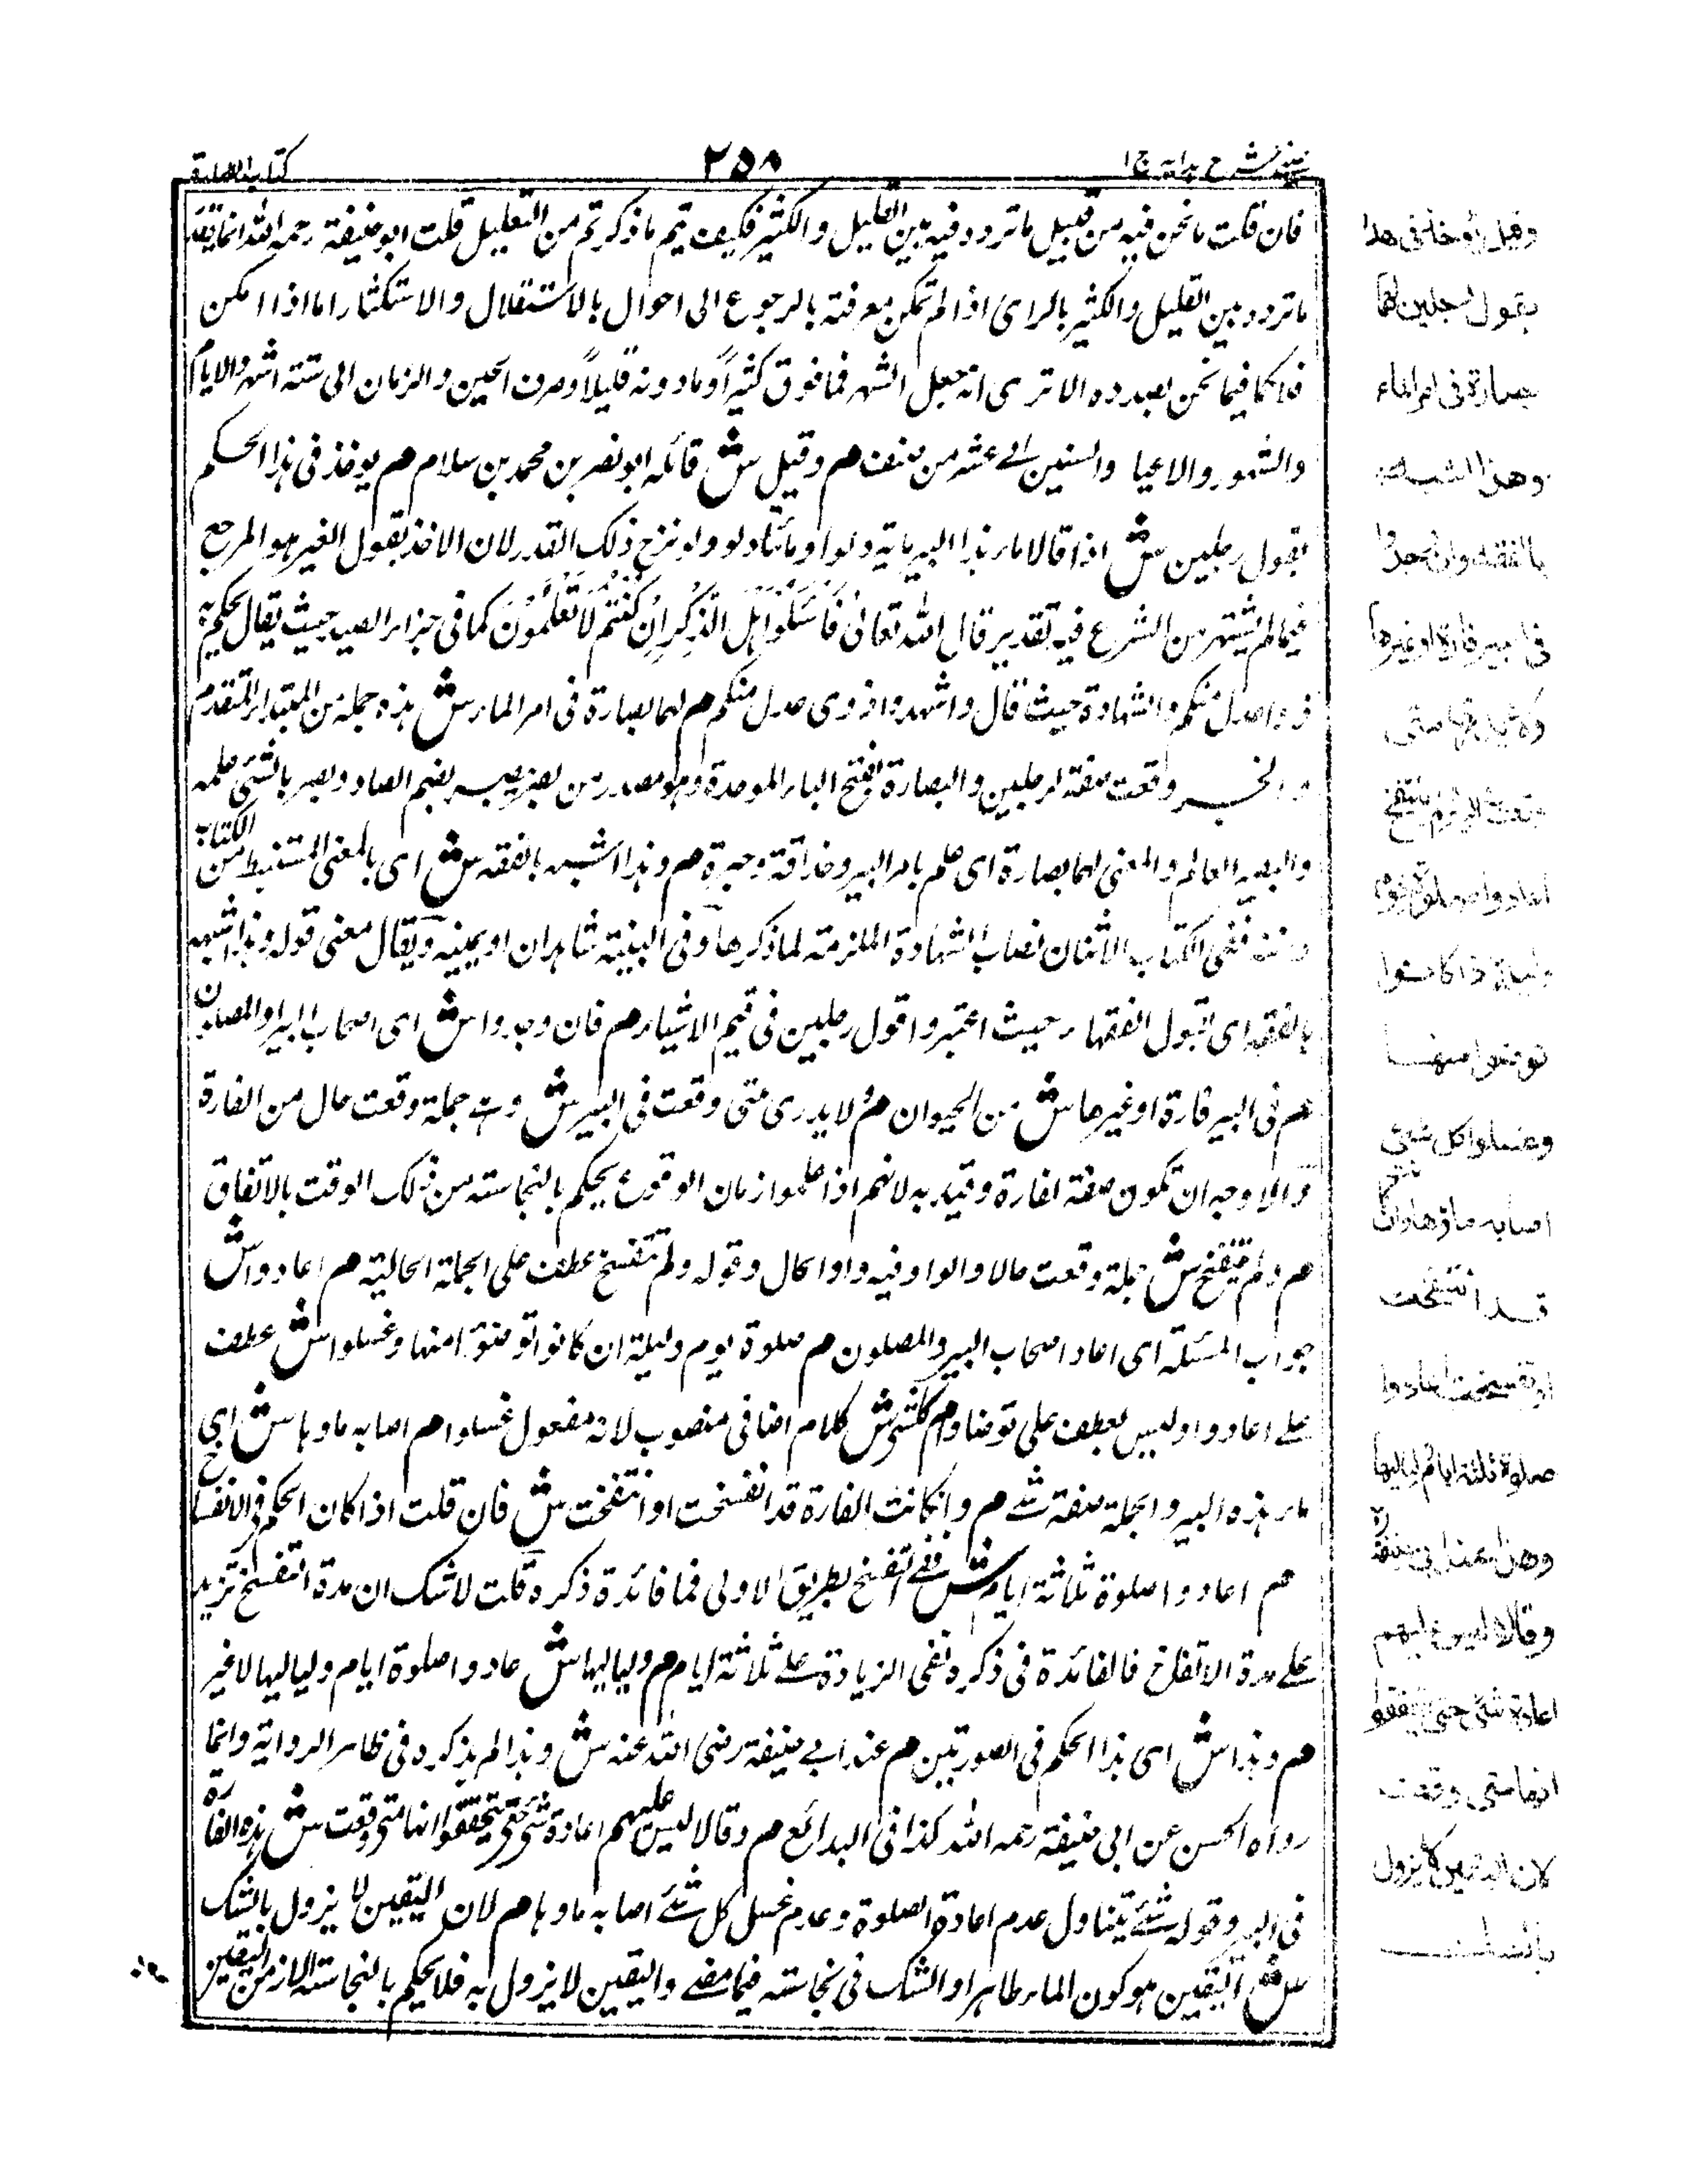 عينى شرح هدايه ج ١
٢٥٨
كتاب الطهارة
فان قلت ما نحن فيه من قبيل ما تردد فيه بين القليل والكثير فكيف يتم ما ذكرتم من التعليل قلت ابو حنيفة رحمه الله انما يعتبر
ما تردد بين القليل والكثير بالراى اذا لم تمكن معرفته بالرجوع الى احوال بالاستقلال والاستكثار اما اذا امكن
فلا كما فيما نحن بصدده الا ترى انه جعل الشهر فما فوق كثيراً وما دونه قليلاً وصرف الحين والزمان الى ستة اشهر والايام
والشهور والاعيا والسنين الى عشرة من صنف هم وقيل ش قائله ابو نصر بن محمد بن سلام هم يوخذ فى هذا الحكم
بقول رجلين ش اذا قالا ماء هذا البير ماية دلوا او مائتا دلو ولو نزح ذلك القدر لان الاخذ بقول الغير هو المرجع
فيما لم يشتهر من الشرع فيه تقدير قال الله تعالى فَاسْئَلُوْا اَهْلَ الذِّكْرِ اِنْ كُنْتُمْ لَا تَعْلَمُوْنَ كما فى جزاء الصيد حيث يقال يحكم به
ذوا عدل منكم والشهادة حيث قال واشهدوا ذوى عدل منكم هم لهما بصارة فى امر الماء ش هذه جملة من المبتدا المتقدم
والخبر وقعت صفة لرجلين والبصارة بفتح الباء الموحدة وهو مصدر من بصر يبصر بضم الصاد وبصر بالشئ علمه
والبصير العالم والمعنى لهما بصارة اى علم بامر البير وحذاقة وخبرة هم وهذا اشبه بالفقه ش اى بالمعنى المستنبط من الكتاب
والسنة ففى الكتاب الاثنان نصاب الشهادة الملزمة لما ذكرها وفى البينة شاهدان او يمينه ويقال معنى قوله وهذا اشبه
بالفقه اى بقول الفقهاء حيث اعتبروا قول رجلين فى قيم الاشياء هم فان وجدوا ش اى اصحاب البير او المصلون
هم فى البير فارة او غيرها ش من الحيوان هم لا يدرى متى وقعت فى البير ش وهى جملة وقعت حال من الفارة
والاوجه ان تكون صفة لفارة وقيد به لانهم اذا علموا زمان الوقوع يحكم بالنجاسته من ذلك الوقت بالاتفاق
هم ولم تنتفخ ش جملة وقعت حالا والواو فيه واو الحال وقوله ولم تتفسخ عطف على الجملة الحالية هم اعادوا ش
جواب المسئلة اى اعاد اصحاب البير والمصلون هم صلوة يوم وليلة ان كانوا توضئوا منها وغسلوا ش عطف
على اعادوا وليس بعطف على توضاوا هم كل شئ ش كلام اضافى منصوب لانه مفعول غسلوا هم اصابه ماوها ش اى
ماء هذه البير والجملة صفة شئ هم وانكانت الفارة قد انفسخت او انتفخت ش فان قلت اذا كان الحكم فى الانتفاخ
هم اعادوا صلوة ثلاثة ايام ش ففى التفسخ بطريق الاولى فما فائدة ذكره قلت لا شك ان مدة التفسخ تزيد
على مدة الانتفاخ فالفائدة فى ذكره نفى الزيادة على ثلاثة ايام هم ولياليها ش عادوا صلوة ايام ولياليها لا غير
هم وهذا ش اى هذا الحكم فى الصورتين هم عند ابى حنيفة رضى الله عنه ش وهذا لم يذكره فى ظاهر الرواية وانما
رواه الحسن عن ابى حنيفة رحمه الله كذا فى البدائع هم وقالا ليس عليهم اعادة شئ حتى يتحققوا انها متى وقعت ش هذه الفارة
فى البير وقوله شئ يتناول عدم اعادة الصلوة وعدم غسل كل شئ اصابه ماوها هم لان اليقين لا يزول بالشك
ش اليقين هو كون الماء طاهرا والشك فى نجاسته فيما مضى واليقين لا يزول به فلا يحكم بالنجاسته الا زمن اليقين
وقيل يوخذ فى هذا
بقول رجلين لهما
بصارة فى امر الماء
وهذا اشبه
بالفقه وان وجدوا
فى البير فارة او غيرها
ولا يدرى متى
وقعت ولم تنتفخ
اعادوا صلوة يوم
وليلة اذا كانوا
توضوا منها
وغسلوا كل شئ
اصابه ماؤها وان كانت
قد انتفخت
او تفسخت اعادوا
صلوة ثلثة ايام ولياليها
وهذا عند ابى حنيفة رح
وقالا ليس عليهم
اعادة شئ حتى يتحققوا
انها متى وقعت
لان اليقين لا يزول
بالشك